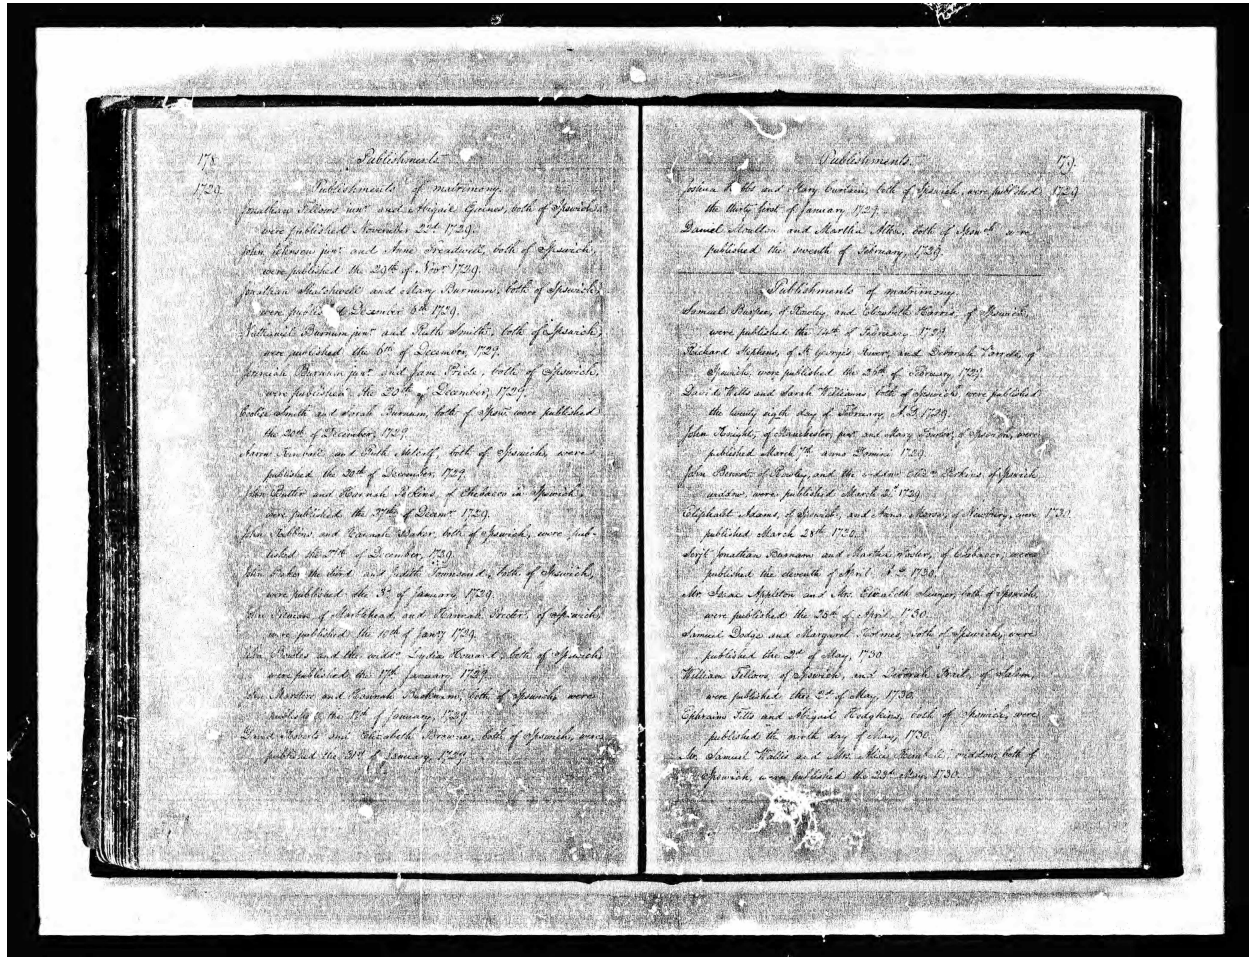 178
Publishments
1729
Publishments of matrimony.
Jonathan Fellows junr and Abigail both of Ipswich,
were published November 22th 1729.
John Johnson junr and Anne Treadwell, both of Ipswich,
were published the 29th of Novr 1729.
Jonathan Shatchwell and Mary Burnum, both of Ipswich,
were December 6th 1729.
Nathaniel Burnum junr and Ruth Smith, both of Ipswich
were published the 6th of December, 1729.
Jeremiah Burnum junr and Jane Pride, both of Ipswich,
were published the 20th of December, 1729.
Smith and Sarah Burnum, both of Ipsw. were published
the 20th of December, 1729.
Aaron Kimball and Ruth Metcalf, both of Ipswich, were
published the 20th of December 1729.
John Butler and Hannah Perkins, of Chebacco in Ipswich,
were published the 27th of Decemr 1729.
John Robbins, and Hannah Baker, both of Ipswich, were pub-
lished the 27th of December, 1729.
John Baker the third and Judith Townsend, both of Ipswich,
were published the 3d of January 1729.
John of Marblehead, and Hannah Procter, of Ipswich,
were published the of Jany 1729.
John and the widdo Lydia Howard, both of Ipswich,
were published the 17th January, 1729.
John and Hannah both of Ipswich, were
published the 17th of January, 1729.
David Roberts and Elizabeth Browne, both of Ipswich, were
published the of January 1729.
Publishments.
179.
Joshua and Mary both of Ipswich, were published
1729
the thirty first of January 1729.
Daniel Moulton and Martha both of were
published the seventh of February, 1729.
Publishments of matrimony.
Samuel Burpee, of Rowley, and Elizabeth Harris, of Ipswich,
were published the 14th of February 1729.
Richard of St Georges River, and Deborah of
Ipswich, were published the of February 1729.
David Wells and Sarah Williams, both of Ipswich were published
the twenty day of February, A.D. 1729.
John Knight, of Manchester, junr and Mary of Ipswich, were
published March anno Domini 1729.
John Bennet, of Rowley, and the widdow Perkins, of Ipswich
widdow, were published March 1729.
Eliphalet Adams, of Ipswich, and of Newbury, were
1730.
published March 28th 1730.
Serjt Jonathan Burnam and Martha of Chebacco, were
published the eleventh of April A.D. 1730.
Mr Isaac Appleton and Mrs Elizabeth Sawyer, both of Ipswich
were published the 25th of April, 1730.
Samuel Dodge and Margaret Holmes, both of Ipswich, were
published the 2d of May, 1730
William Fellows, of Ipswich, and Deborah of Salem,
were published the 2d of May, 1730.
Ephraim Fitts and Abigail Hodgkins, both of Ipswich, were
published the ninth day of May, 1730.
Mr Samuel Wallis and Mrs Kimball, widdow, both of
Ipswich, were published the 23th May, 1730.